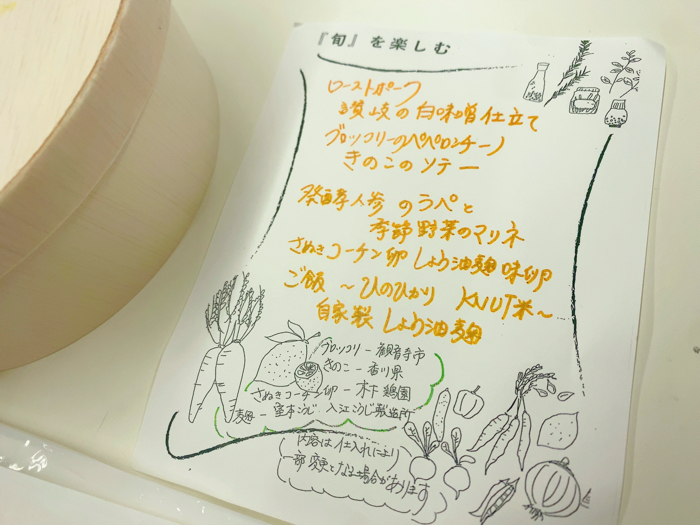 『旬』を楽しむ
ローストポーク
讃岐の白味噌仕立て
ブロッコリーのペペロンチーノ
きのこのソテー
発酵人参のラペと
季節野菜のマリネ
さぬきコーチン卵 しょう油麹味卵
ご飯 ～ひのひかり KNUT米～
自家製 しょう油麹
ブロッコリー - 観音寺市
きのこ - 香川県
さぬきコーチン卵 - 木下鶏園
麹 - 室本こうじ 入江こうじ製造所
内容は仕入れにより
一部変更となる場合があります